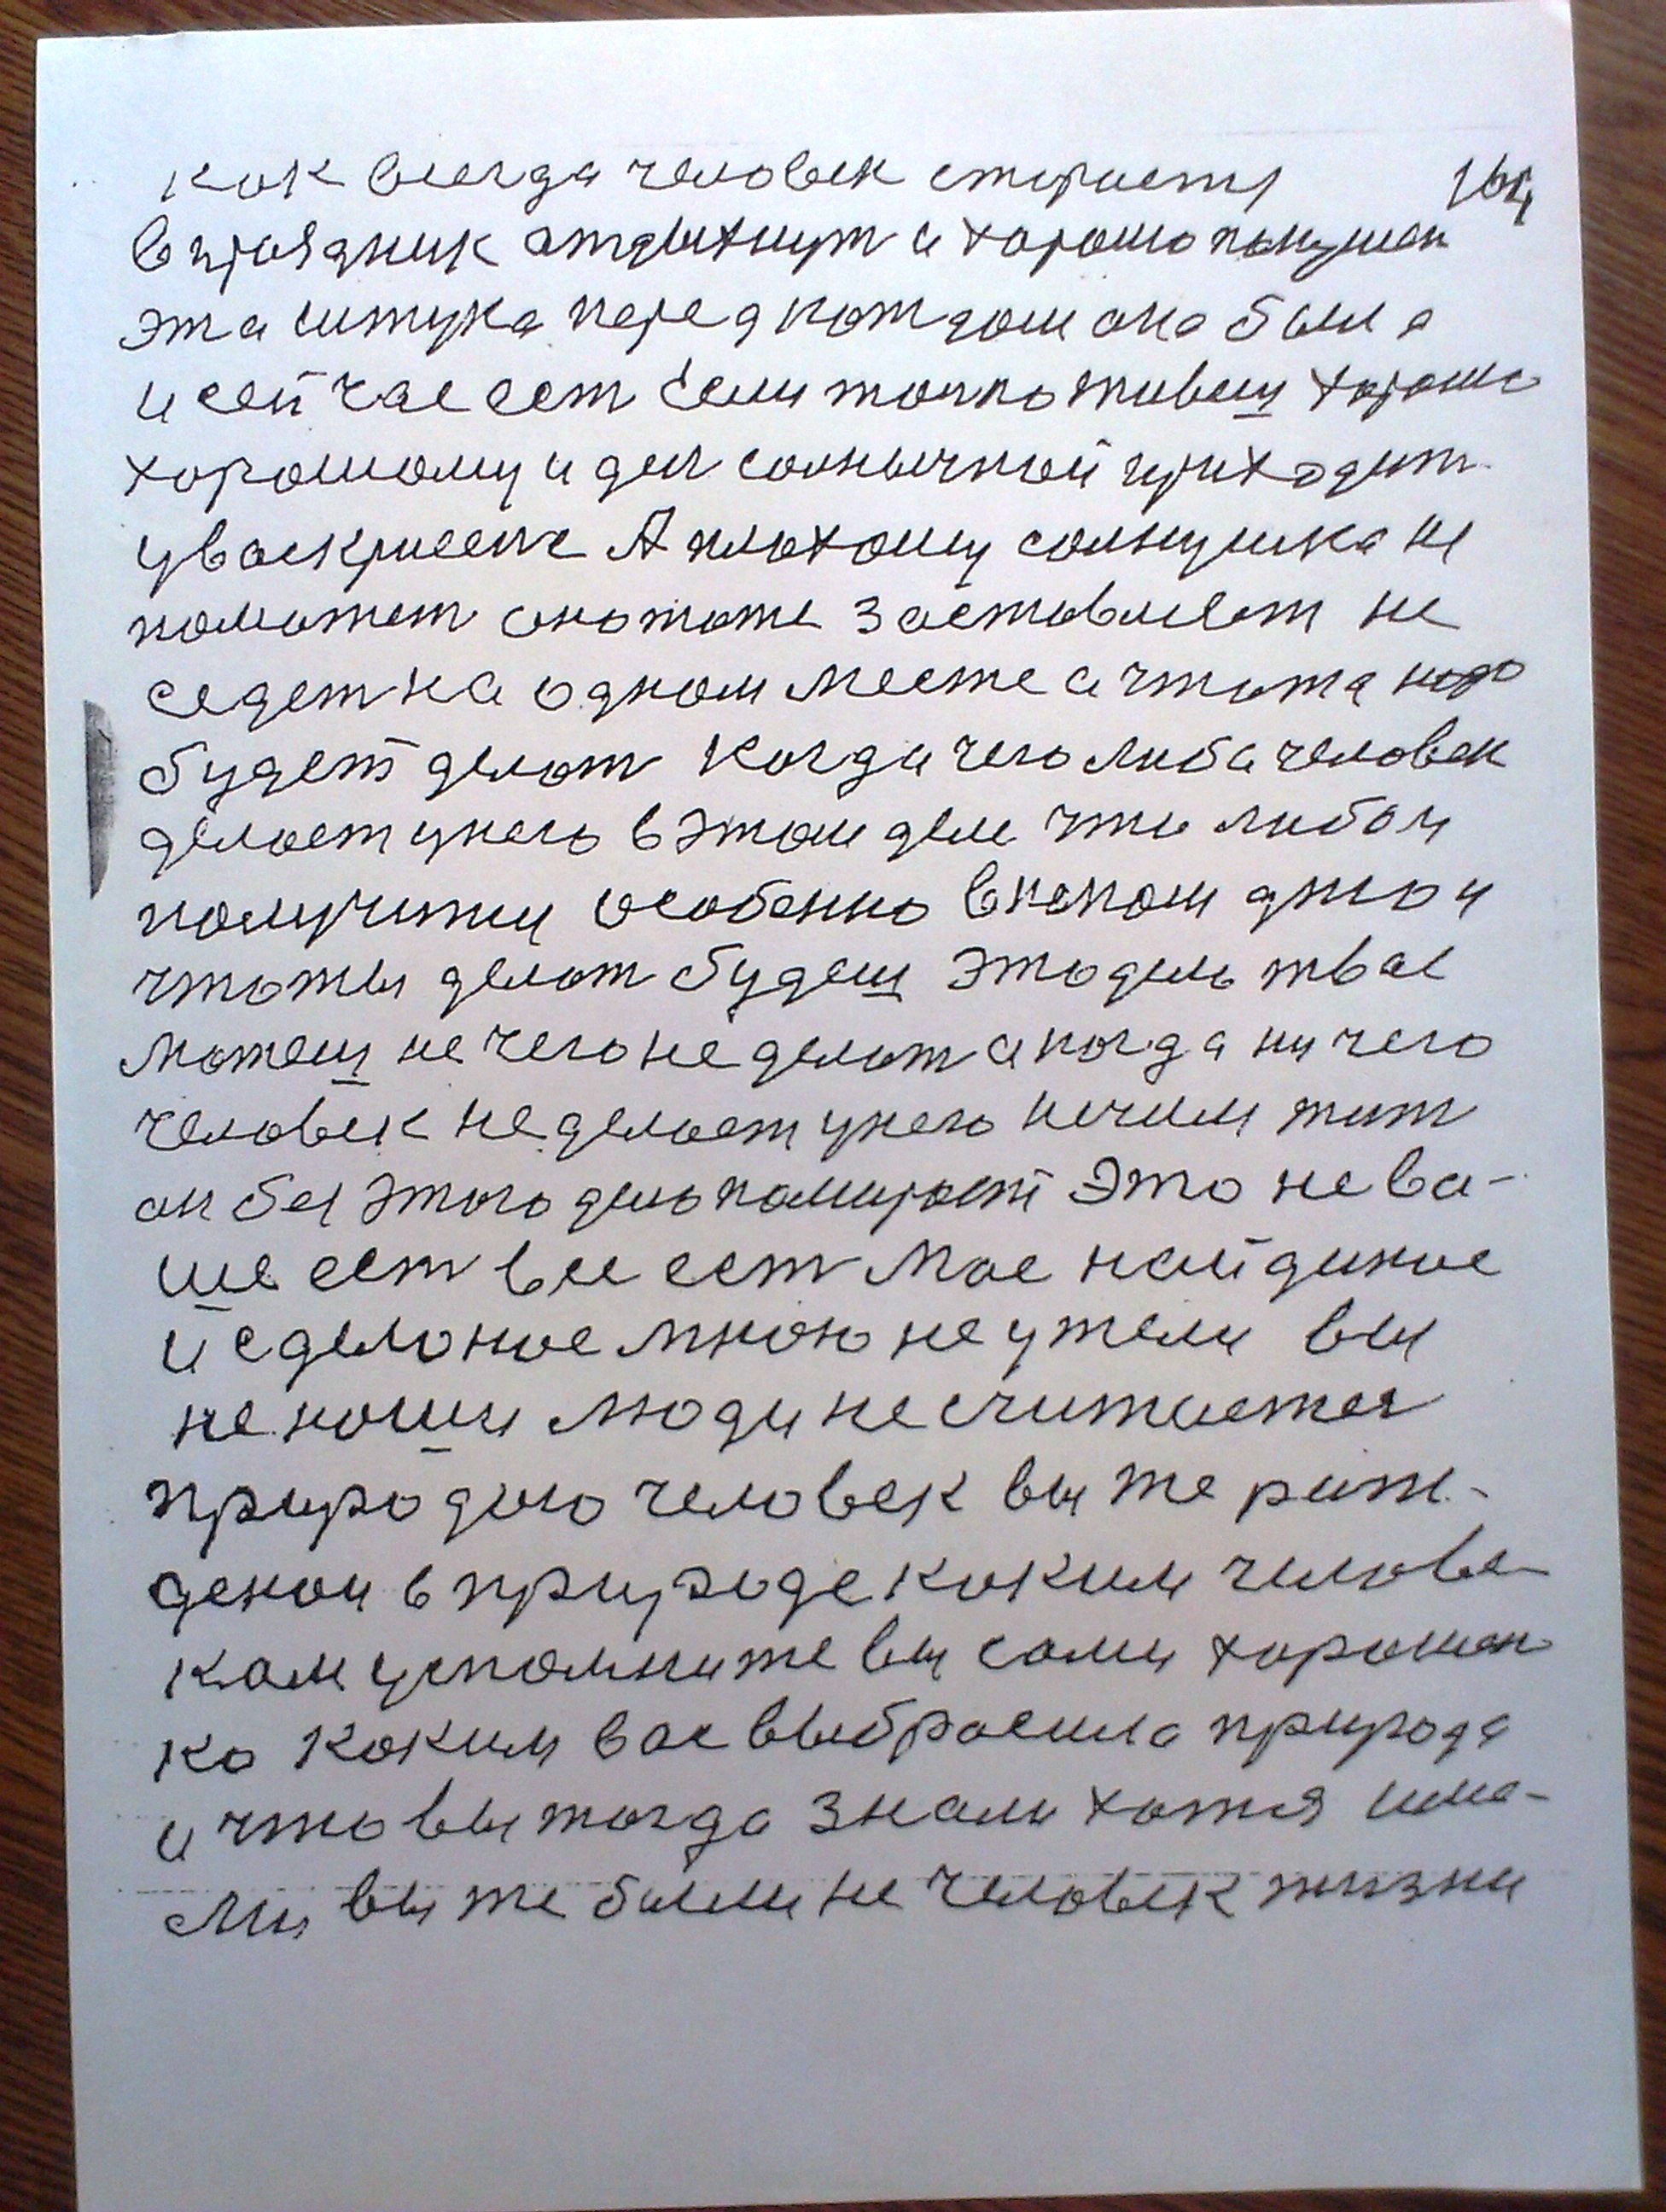 как всегда человек стараетя 164
в праздник атдыхнут и харошо пакушат
эта штука перед кождом она была
и сейчас ест Если толко живеш хорошо
хорошому и ден солнычной приходит
у васкрисене А плохому солнушка не
поможет оно тоже заставляет не
седет на одном месте а чтото надо
будет делат Когда чего либа человек
делает унего в этом деле что либои
получитця особенно в некоем дню и
чтоты делат будеш это дело твае
можеш не чего не делат а когда ни чего
человек неделает унего нечим жит
он без этого дело памирает Это не ва-
ше ест все ест мое найдиное
и сделоное мною не ужели вы
не наши люди не считается
природою человек вы же рож-
деной в природе коким челове-
кам успомните вы сами хорошен
ко коким вас выбрасила природа
и что вы тогда знали хотя име-
ли вы же были не человек жизни